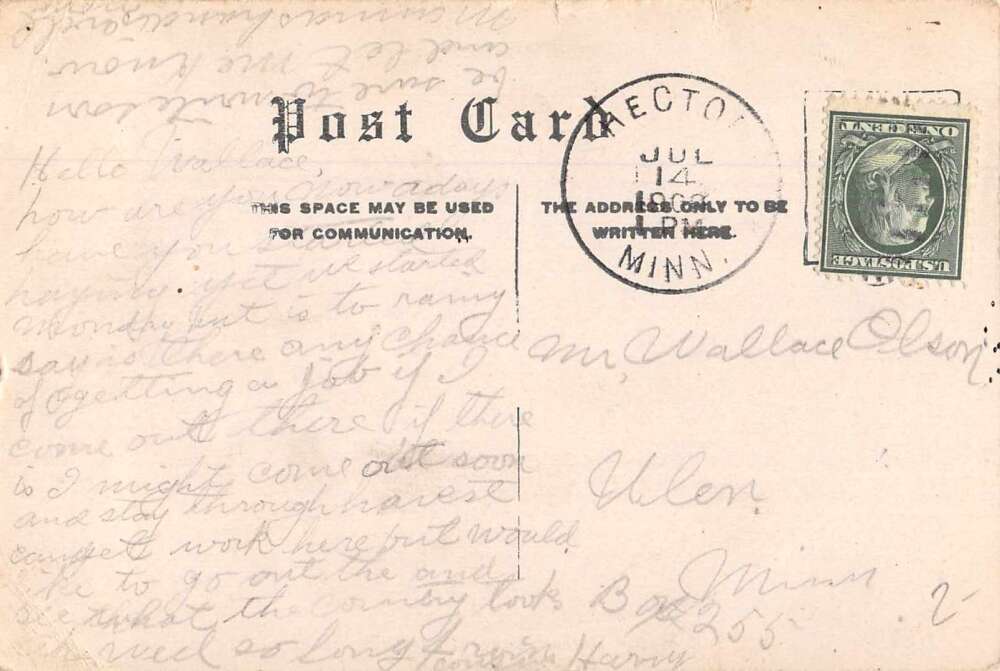 Post Card
THIS SPACE MAY BE USED
FOR COMMUNICATION.
THE ADDRESS ONLY TO BE
WRITTEN HERE.
HECTO
JUL
14
1 PM
MINN.
ONE CENT
U.S. POSTAGE
Hello Wallace,
how are you nowadays
have you started
haying yet we started
Monday but is to rainy
say is there any chance
of getting a job if I
come out there if there
is I might come out soon
and stay through harest
can get work here but would
like to go out the and
see what the country looks
well so long from
Harry
be sure to write soon
and let me know
Mr. Wallace Olson,
Ulen
Minn
Box 255
2